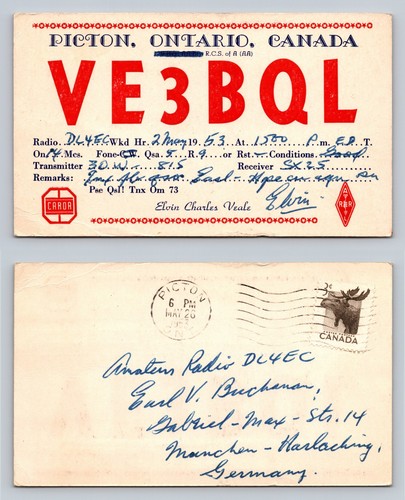 PICTON, ONTARIO, CANADA
R.C.S. of A (AA)
VE3BQL
Radio. DL4EC Wkd Hr. 2 May 1953 At 1500 P.m. E.S.T.
On 14 Mcs. Fone-CW. Qsa. 5 R. 9 or Rst. Conditions. Good.
Transmitter 3 D.W. 815 Receiver SX25
Remarks: Tnx fer QSO Earl - Hpe cu agn
Pse Qsl! Tnx Om 73 Elvin
Elvin Charles Veale
CAROA
PICTON
6 PM
MAY 26
CANADA
Amateur Radio DL4EC
Earl V. Buchanan,
Gabriel-Max-Str. 14
Munchen-Harlaching,
Germany.